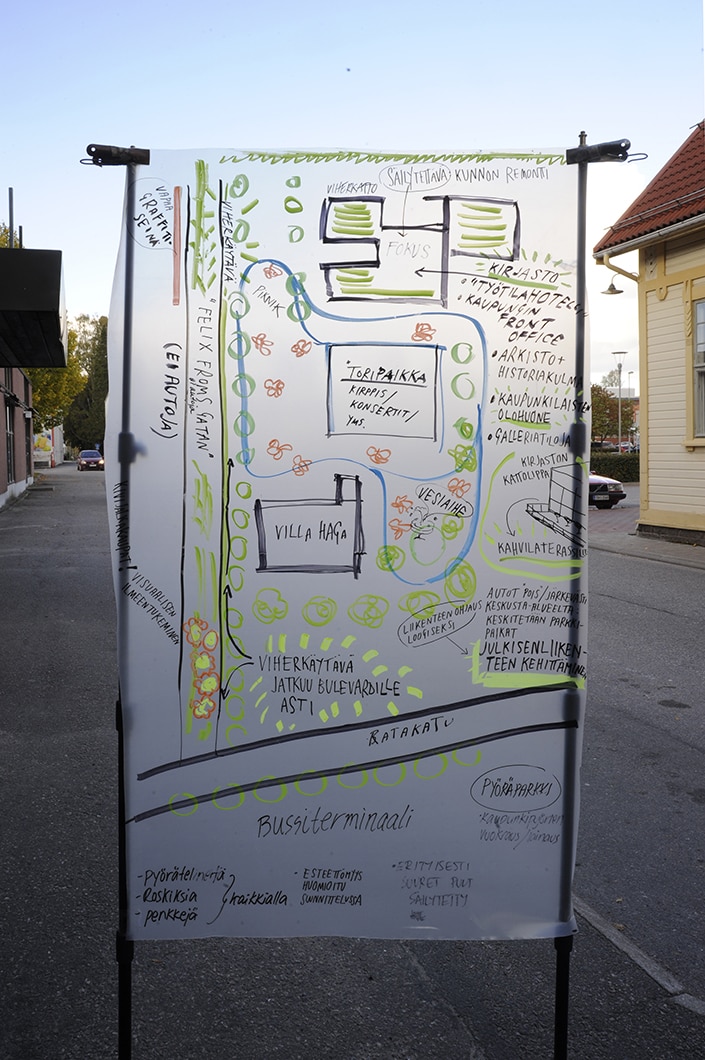 VAPAA
GRAFFITI-
SEINÄ
VIHERKÄYTÄVÄ
VIHERKATTO
SÄILYTETTÄVÄ KUNNON REMONTI
FOKUS
PIKNIK
"FELIX FROMS GATAN"
(EI AUTOJA)
KIRJASTO
• "TYÖTILAHOTELLI"
• KAUPUNGIN
FRONT
OFFICE
• ARKISTO+
HISTORIAKULMA
• KAUPUNKILAISTEN
OLOHUONE
• GALLERIATILOJA
TORIPAIKKA
KIRPPIS/
KONSERTIT/
YMS.
KIRJASTON
KATTOLIPPA
KAHVILATERASSI
VESIAIHE
VILLA HAGA
VISUAALISEN
ILMEEN TUKEMINEN
AUTOT POIS/JÄRKEVÄSTI
KESKUSTA-ALUEELTA -
KESKITETÄÄN PARKKI-
PAIKAT
LIIKENTEEN OHJAUS
LOOGISEKSI
JULKISENLIIKEN-
TEEN KEHITTÄMINEN
VIHERKÄYTÄVÄ
JATKUU BULEVARDILLE
ASTI
RATAKATU
BUSSITERMINAALI
PYÖRÄPARKKI
• Kaupunkipyörien
vuokraus/lainaus
- pyörätelineitä
- Roskiksia
- penkkejä
kaikkialla
• ESTEETTÖMYYS
HUOMIOITU
SUUNNITTELUSSA
• ERITYISESTI
SUURET PUUT
SÄILYTETTY